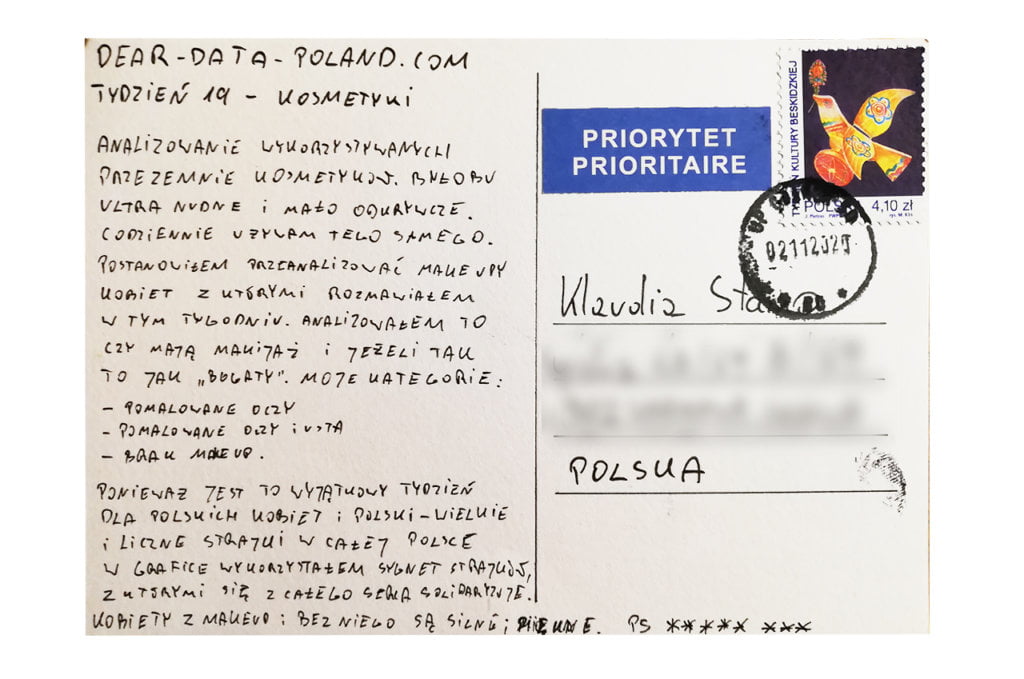 DEAR-DATA-POLAND.COM
TYDZIEŃ 19 - KOSMETYKI
ANALIZOWANIE WYKORZYSTYWANYCH
PRZEZEMNIE KOSMETYKÓW. BYŁOBY
ULTRA NUDNE I MAŁO ODKRYWCZE.
CODZIENNIE UŻYWAM TEGO SAMEGO.
POSTANOWIŁEM PRZEANALIZOWAĆ MAKEUPY
KOBIET Z KTÓRYMI ROZMAWIAŁEM
W TYM TYGODNIU. ANALIZOWAŁEM TO
CZY MAJĄ MAKIJAŻ I JEŻELI TAK
TO JAK „BOGATY". MOJE KATEGORIE:
- POMALOWANE OCZY
- POMALOWANE OCZY I USTA
- BRAK MAKEUP.
PONIEWAŻ JEST TO WYJĄTKOWY TYDZIEŃ
DLA POLSKICH KOBIET I POLSKI-WIELKIE
I LICZNE STRAJKI W CAŁEJ POLSCE
W GRAFICE WYKORZYSTAŁEM SYGNET STRAJKÓW,
Z KTÓRYMI SIĘ Z CAŁEGO SERCA SOLIDARYZUJĘ.
KOBIETY Z MAKEUP I BEZ NIEGO SĄ SILNE I PIĘKNE. PS ***** ***
PRIORYTET
PRIORITAIRE
TYDZIEŃ KULTURY BESKIDZKIEJ
POLSKA 4,10 zł
02112020
Klaudia
POLSKA